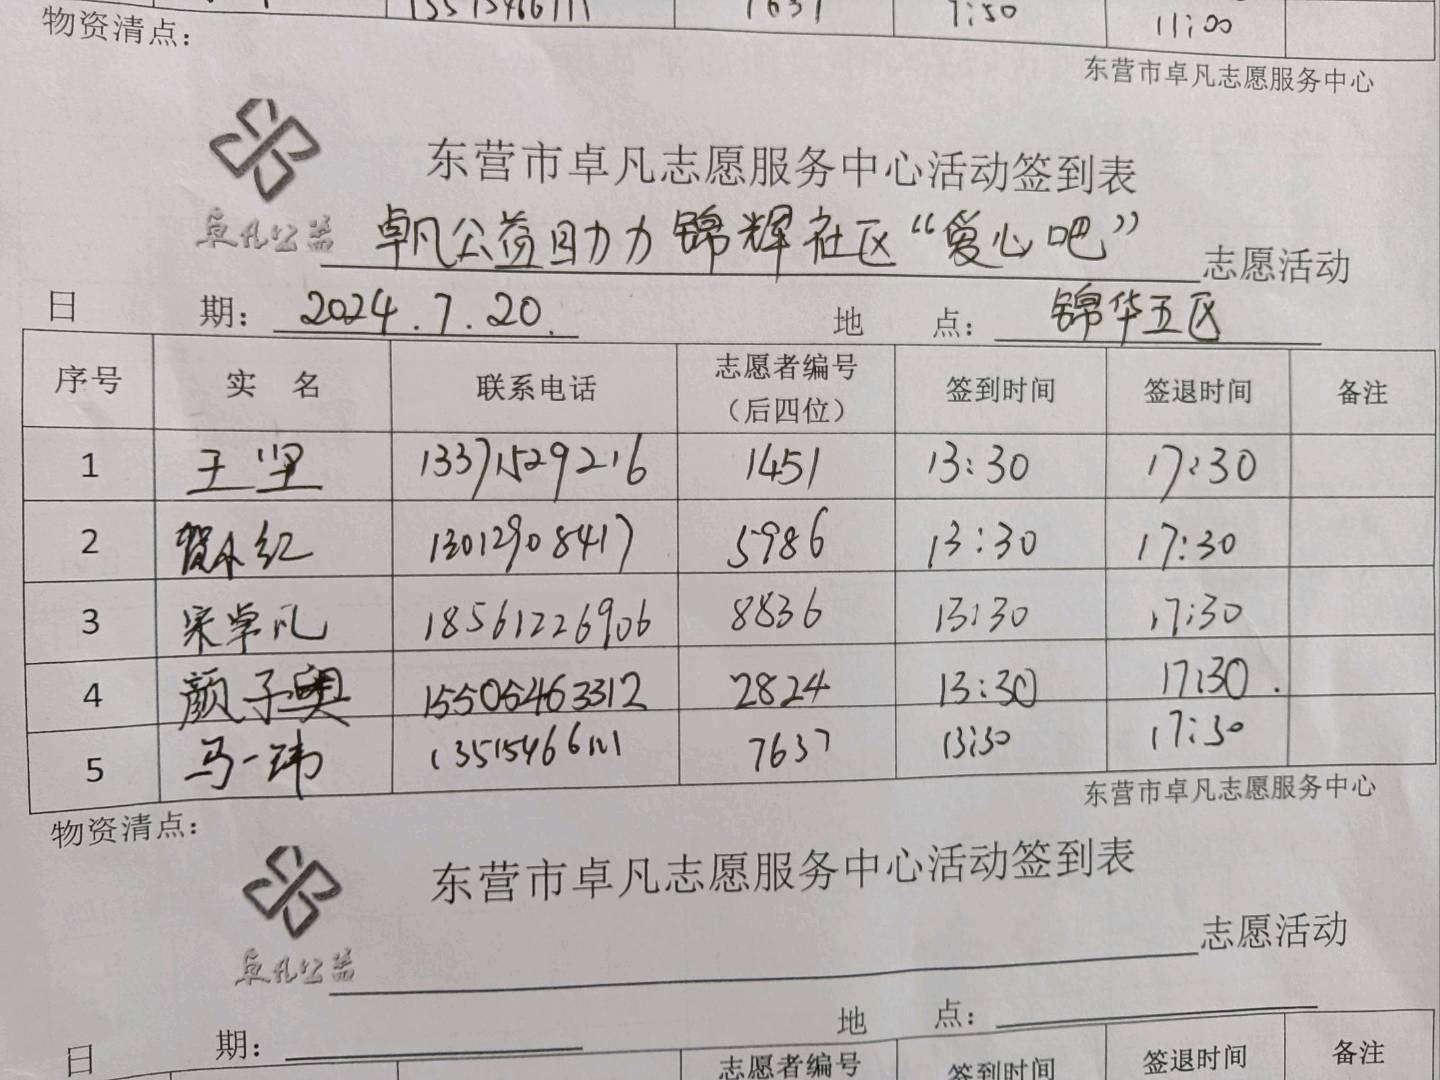 13515466111 7637 7:50 11:00
物资清点：
东营市卓凡志愿服务中心
东营市卓凡志愿服务中心活动签到表
卓凡公益
卓凡公益助力锦辉社区“爱心吧”志愿活动
日 期：2024.7.20. 地 点：锦华五区
序号 实 名 联系电话 志愿者编号（后四位） 签到时间 签退时间 备注
1 王坚 13371529216 1451 13:30 17:30
2 贺小红 13012908417 5986 13:30 17:30
3 宋卓凡 18561226906 8836 13:30 17:30
4 颜子奥 15505463312 2824 13:30 17:30.
5 马一玮 13515466111 7637 13:30 17:30
东营市卓凡志愿服务中心
物资清点：
东营市卓凡志愿服务中心活动签到表
卓凡公益
志愿活动
日 期： 地 点：
志愿者编号 签到时间 签退时间 备注